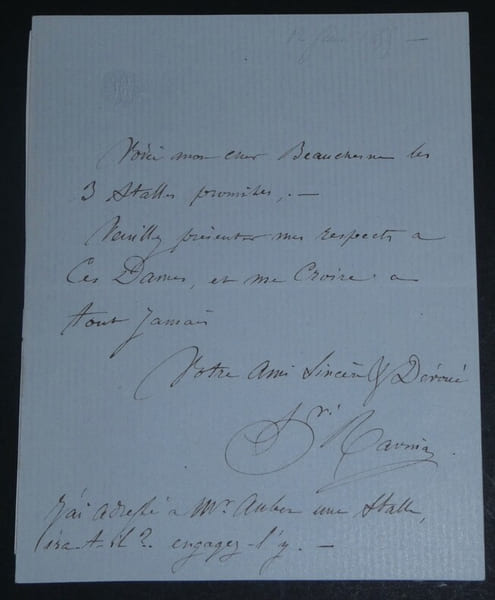 Voici mon cher Beauchesne les
3 Stalles promises, . —
Veuillez présenter mes respects a
Ces Dames, et me Croire a
tout Jamais
Votre Ami Sincère & Dévoué
J'ai adressé à Mr. Auber une Stalle,
ira-t-il ? engagez-l'y. —